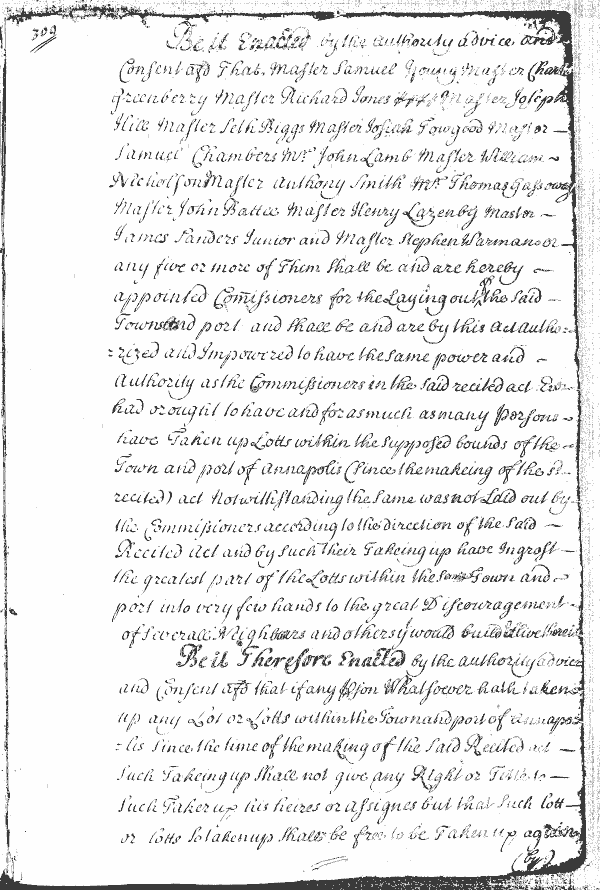 309
Be it Enacted by the authority advice and
Consent afd That Master Samuel Young Master Charles
Greenberry Master Richard Jones Master Joseph
Hill, Master Seth Biggs Master Josiah Towgood Master
Samuel Chambers Mr John Lamb Master William
Nicholson Master Anthony Smith Mr Thomas Gassoway
Master John Battee Master Henry Lazenby Master
James Sanders Junior and Master Stephen Warman or
any five or more of Them shall be and are hereby
appointed Comissioners for the Laying out of the said
Town and port and shall be and are by this Act Autho-
-rized and Impowered to have the same power and
Authority as the Commissioners in the said recited act Ever
had or ought to have and for as much as many Persons
have Taken up Lotts within the supposed bounds of the
Town and port of Annapolis (since the makeing of the sd
recited) act Notwithstanding the same was not Laid out by
the Commissioners according to the direction of the said
Recited Act and by such their Takeing up have Ingrost
the greatest part of the Lotts within the same Town and
port into very few hands to the great Discouragement
of severall Neighbours and others yt would build & live therein
Be it Therefore Enacted by the authority advice
and Consent afd that if any Pson Whatsoever hath taken
up any Lot or Lotts within the Town and port of Annapo-
-lis since the time of the making of the said Recited act
such Takeing up shall not give any Right or Title to
such Taker up his heires or assignes but that such lott
or lotts so taken up shall be free to be Taken up againe
(by)